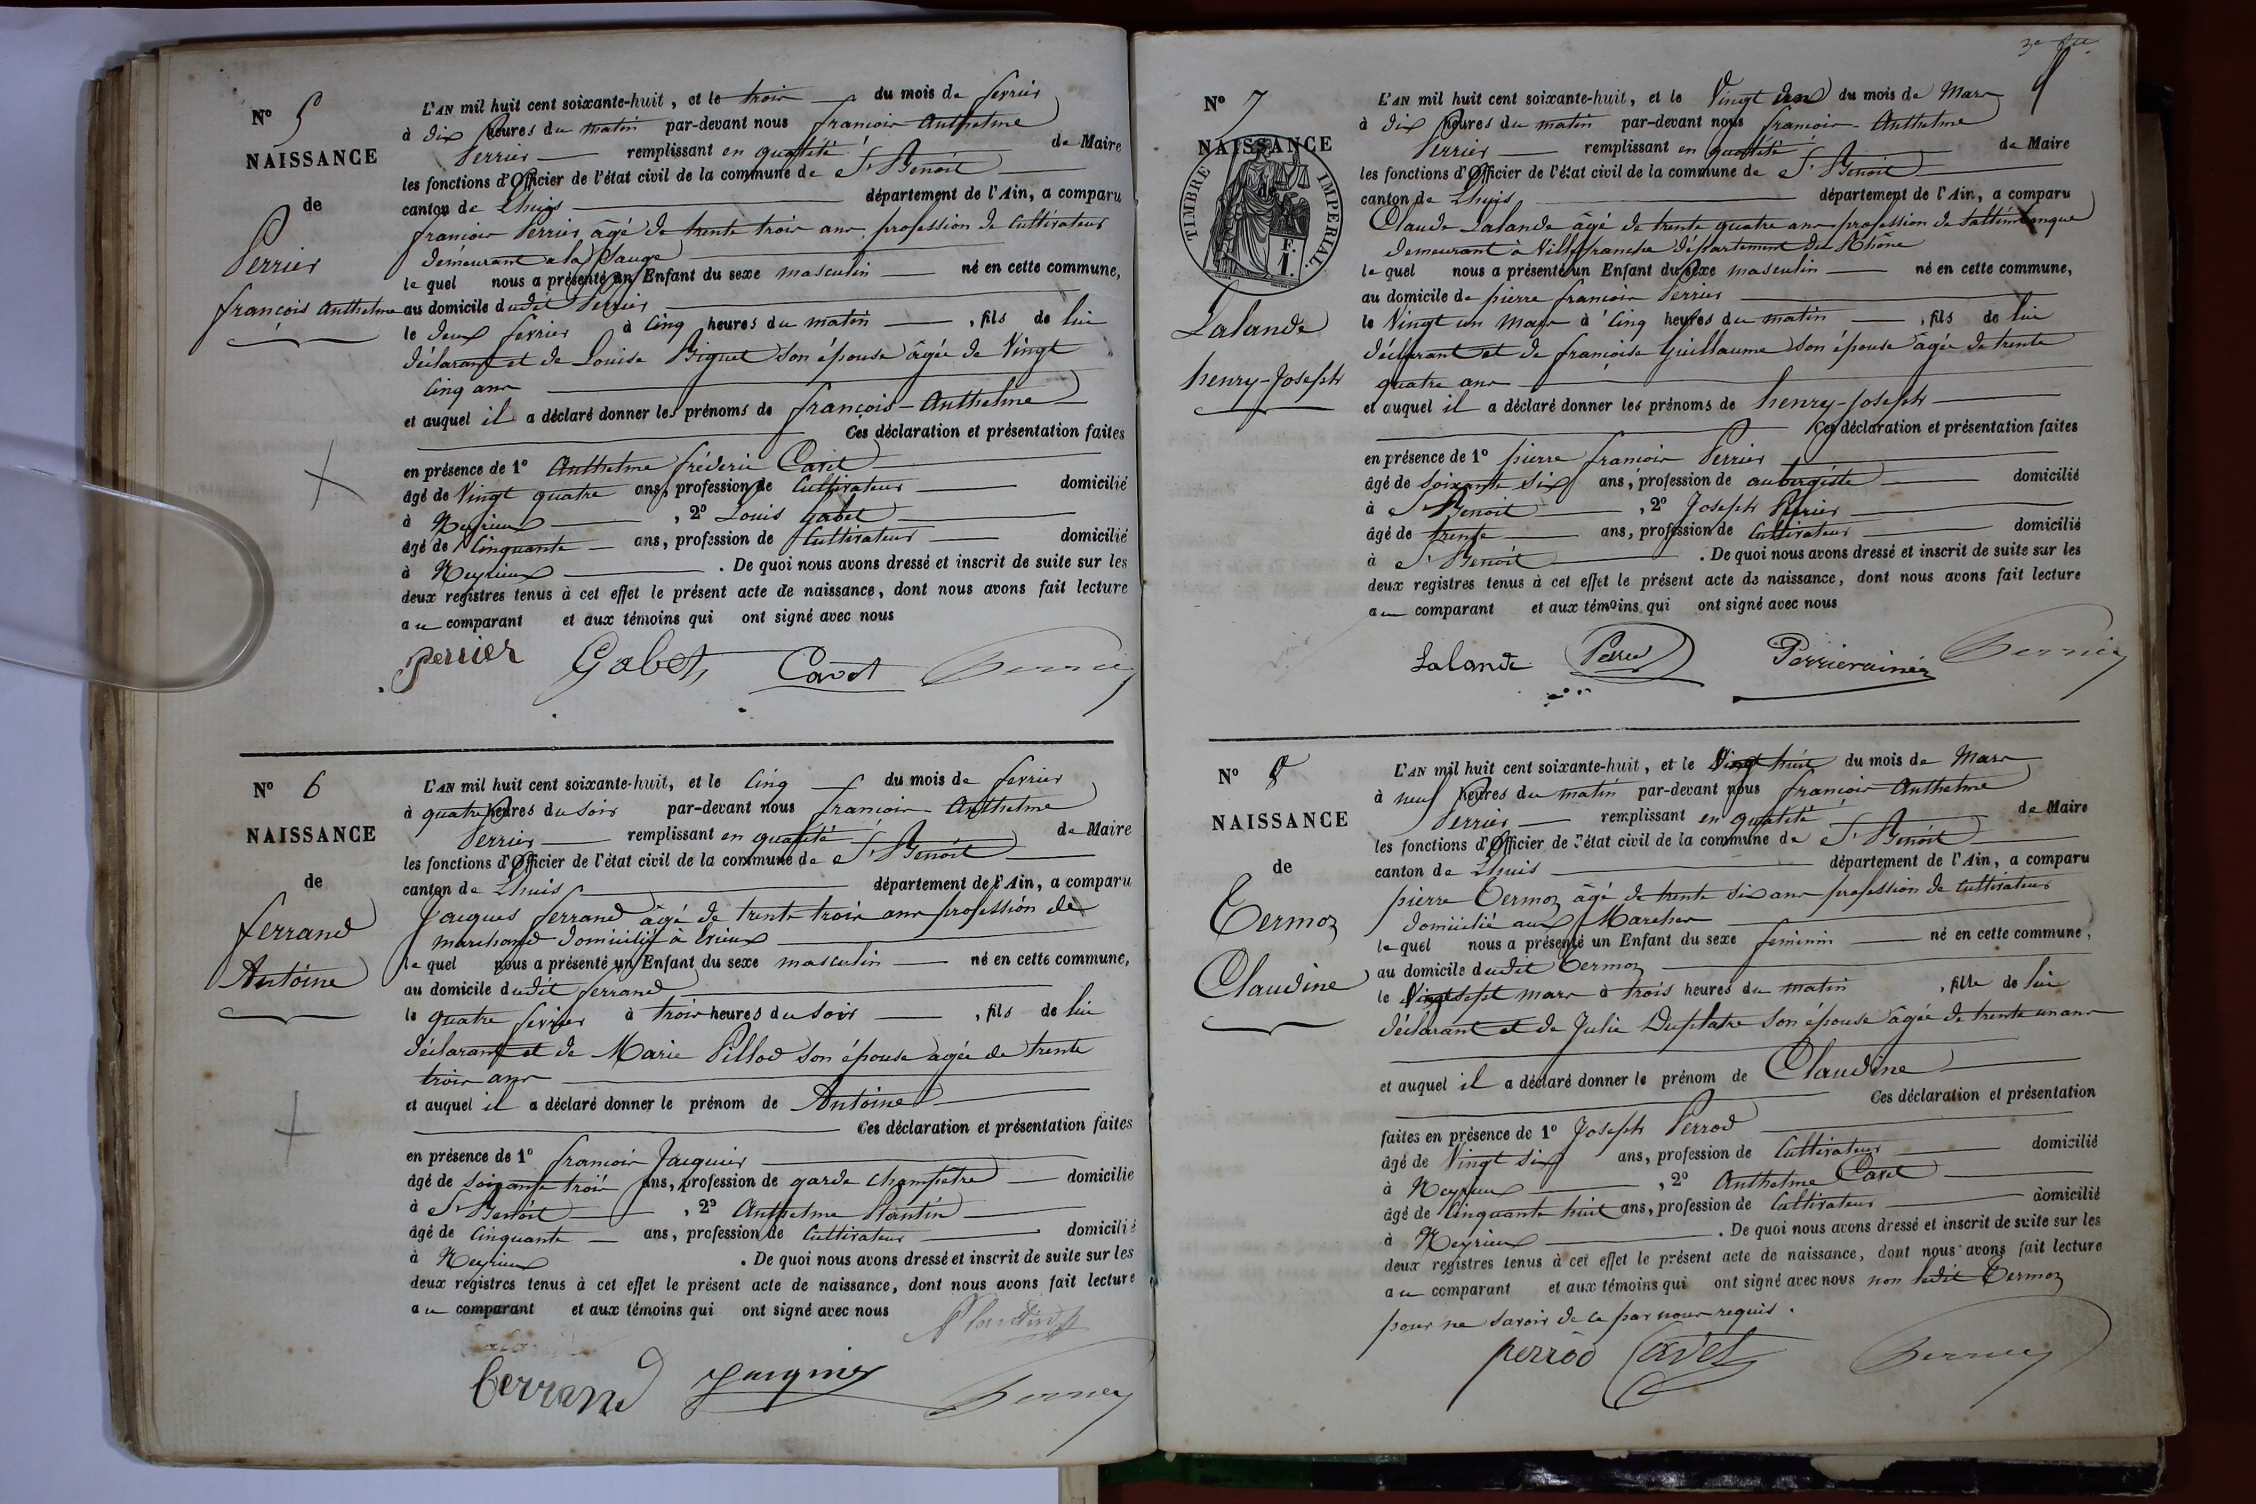 Nº 5
NAISSANCE
de
Perrier
françois Anthelme
L'AN mil huit cent soixante-huit, et le trois du mois de fevrier
à dix heures du matin par-devant nous françois Anthelme
Perrier remplissant en qualité de Maire
les fonctions d'Officier de l'état civil de la commune de St Benoit
canton de Lhuis département de l'Ain, a comparu
françois Perrier âgé de trente trois ans, profession de Cultivateur
demeurant à la
le quel nous a présenté un Enfant du sexe masculin né en cette commune,
au domicile dudit Perrier
le deux fevrier à cinq heures du matin , fils de lui
déclarant et de Louise Biguet son épouse âgée de Vingt
Cinq ans
et auquel il a déclaré donner les prénoms de françois-Anthelme
Ces déclaration et présentation faites
en présence de 1º Anthelme fréderic Cavet
âgé de Vingt quatre ans, profession de Cultivateur domicilié
à Meyrieux , 2º Louis Gabet
âgé de Cinquante ans, profession de Cultivateur domicilié
à Meyrieux . De quoi nous avons dressé et inscrit de suite sur les
deux registres tenus à cet effet le présent acte de naissance, dont nous avons fait lecture
au comparant et aux témoins qui ont signé avec nous
perrier Gabet Cavet Perrier
Nº 6
NAISSANCE
de
ferrand
Antoine
L'AN mil huit cent soixante-huit, et le Cinq du mois de fevrier
à quatre heures du soir par-devant nous françois Anthelme
Perrier remplissant en qualité de Maire
les fonctions d'Officier de l'état civil de la commune de St Benoit
canton de Lhuis département de l'Ain, a comparu
Jacques ferrand âgé de trente trois ans profession de
marchand domicilié à Evieux
le quel nous a présenté un Enfant du sexe masculin né en cette commune,
au domicile dudit ferrand
le quatre fevrier à trois heures du soir , fils de lui
déclarant et de Marie Pillod son épouse agée de trente
trois ans
et auquel il a déclaré donner le prénom de Antoine
Ces déclaration et présentation faites
en présence de 1º françois Jacquier
âgé de soixante trois ans, profession de garde champetre domicilié
à St Benoit , 2º Anthelme Plantin
âgé de Cinquante ans, profession de Cultivateur domicilié
à Meyrieux . De quoi nous avons dressé et inscrit de suite sur les
deux registres tenus à cet effet le présent acte de naissance, dont nous avons fait lecture
au comparant et aux témoins qui ont signé avec nous
Plantin
ferrand Jacquier Perrier
Nº 7
NAISSANCE
de
TIMBRE IMPERIAL
F.
1.
Lalande
henry-Joseph
L'AN mil huit cent soixante-huit, et le Vingt un du mois de Mars
à dix heures du matin par-devant nous françois-Anthelme
Perrier remplissant en qualité de Maire
les fonctions d'Officier de l'état civil de la commune de St Benoit
canton de Lhuis département de l'Ain, a comparu
Claude Lalande âgé de trente quatre ans profession de saltimbanque
demeurant à Villefranche département du Rhône
le quel nous a présenté un Enfant du sexe masculin né en cette commune,
au domicile de pierre françois Perrier
le Vingt un Mars à Cinq heures du matin , fils de lui
déclarant et de françoise Guillaume son épouse âgée de trente
quatre ans
et auquel il a déclaré donner les prénoms de henry-joseph
Ces déclaration et présentation faites
en présence de 1º pierre françois Perrier
âgé de soixante six ans, profession de aubergiste domicilié
à St Benoit , 2º Joseph Perrier
âgé de trente ans, profession de Cultivateur domicilié
à St Benoit . De quoi nous avons dressé et inscrit de suite sur les
deux registres tenus à cet effet le présent acte de naissance, dont nous avons fait lecture
au comparant et aux témoins qui ont signé avec nous
Lalande Perrier Perrierainé Perrier
Nº 8
NAISSANCE
de
Termoz
Claudine
L'AN mil huit cent soixante-huit, et le Vingt huit du mois de Mars
à neuf heures du matin par-devant nous françois Anthelme
Perrier remplissant en qualité de Maire
les fonctions d'Officier de l'état civil de la commune de St Benoit
canton de Lhuis département de l'Ain, a comparu
pierre Termoz âgé de trente six ans profession de Cultivateur
domicilié aux Marches
le quel nous a présenté un Enfant du sexe feminin né en cette commune,
au domicile dudit Termoz
le Vingt sept mars à trois heures du matin , fille de lui
déclarant et de Julie Duplatre son épouse âgée de trente un ans
et auquel il a déclaré donner le prénom de Claudine
Ces déclaration et présentation
faites en présence de 1º Joseph Perrod
âgé de Vingt six ans, profession de Cultivateur domicilié
à Meyrieux , 2º Anthelme Cavet
âgé de Cinquante huit ans, profession de Cultivateur domicilié
à Meyrieux . De quoi nous avons dressé et inscrit de suite sur les
deux registres tenus à cet effet le présent acte de naissance, dont nous avons fait lecture
au comparant et aux témoins qui ont signé avec nous non ledit Termoz
pour ne savoir de ce par nous requis.
perrod Cavet Perrier